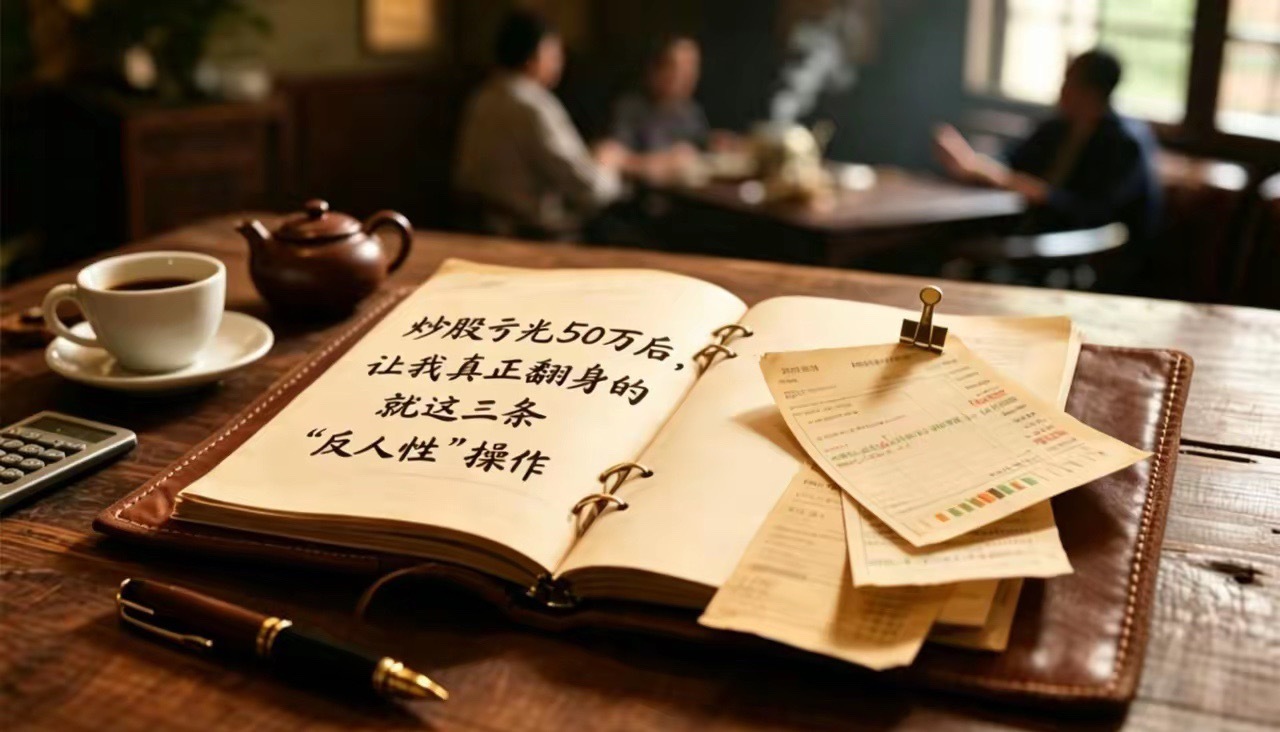 炒股亏光50万后,
让我真正翻身的
就这三条
“反人性”操作